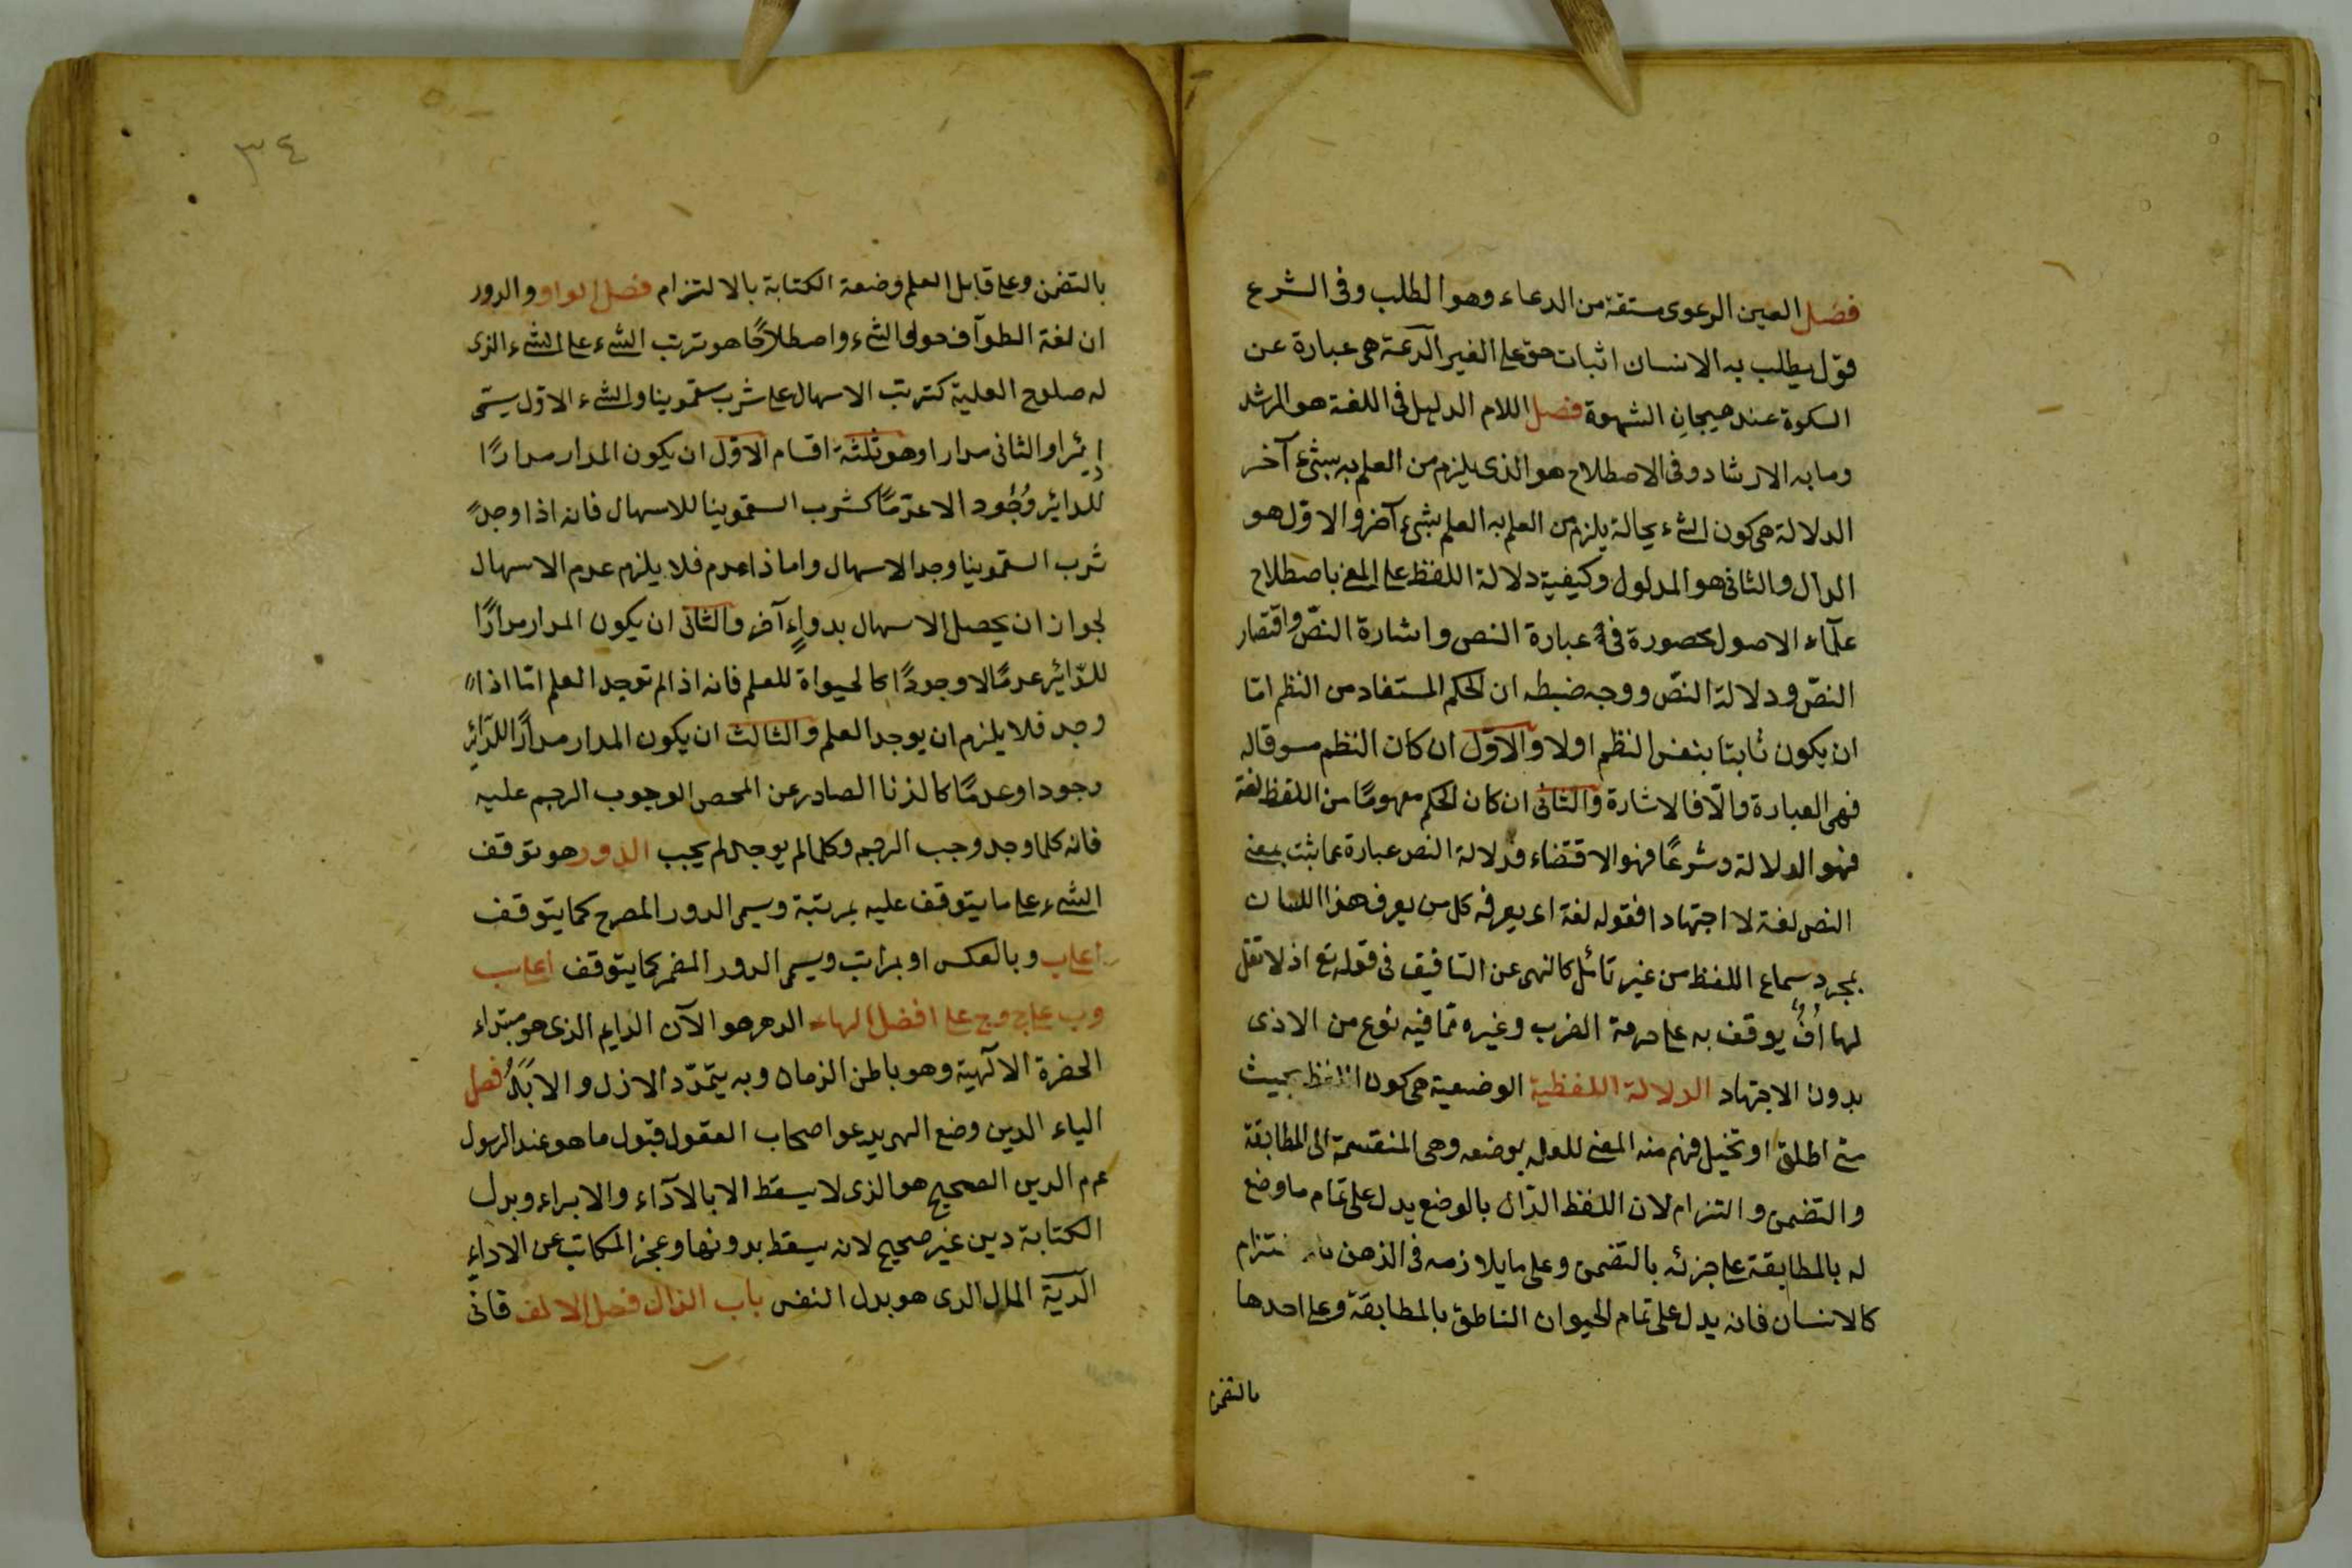 فصل العين الدعوى مستقة من الدعاء وهو الطلب وفى الشرع
قول يطلب به الانسان اثبات حق على الغير الدعة هى عبارة عن
السكوة عند هيجان الشهوة فصل اللام الدليل فى اللغة هو المرشد
وما به الارشاد وفى الاصطلاح هو الذى يلزم من العلم به بشئ آخر
الدلالة هى كون الشئ بحالة يلزم من العلم به العلم بشئ آخر والاول هو
الدال والثانى هو المدلول وكيفية دلالة اللفظ على المعنى باصطلاح
علماء الاصول محصورة فى عبارة النص واشارة النص واقتصار
النص ودلالة النص ووجه ضبطه ان الحكم المستفاد من النظم اما
ان يكون ثابتا بنفس النظم اولا والاول ان كان النظم مسوقا له
فهى العبارة والا فالاشارة والثانى ان كان الحكم مفهوما من اللفظ لغة
فهو الدلالة وشرعا فهو الاقتضاء فدلالة النص عبارة عما ثبت بمعنى
النص لغة لا اجتهادا فقوله لغة اى يعرفه كل من يعرف هذا اللسان
بمجرد سماع اللفظ من غير تأمل كالنهى عن التافيف فى قوله تع اذ لا تقل
لهما اف يوقف به على حرمة الضرب وغيره مما فيه نوع من الاذى
بدون الاجتهاد الدلالة اللفظية الوضعية هى كون اللفظ بحيث
متى اطلق او تخيل فهم منه المعنى للعلم بوضعه وهى المنقسمة الى المطابقة
والتضمن والتزام لان اللفظ الدال بالوضع يدل على تمام ما وضع
له بالمطابقة على جزئه بالتضمن وعلى ما يلازمه فى الذهن
كالانسان فانه يدل على تمام الحيوان الناطق بالمطابقة وعلى احدها
بالتضمن
٣٤
بالتضمن وعلى قابل العلم وضعة الكتابة بالالتزام فصل الواو والدور
ان لغة الطواف حول الشئ واصطلاحا هو ترتب الشئ على الشئ الذى
له صلوح العلية كترتب الاسهال على شرب سقمونيا والشئ الاول يسمى
دائرا والثانى مدارا وهو ثلثة اقسام الاول ان يكون المدار مدارا
للدائر وجود الا عدما كشرب السقمونيا للاسهال فانه اذا وجد
شرب السقمونيا وجد الاسهال واما ذا عدم فلا يلزم عدم الاسهال
لجواز ان يحصل الاسهال بدواء آخر والثانى ان يكون المدار مدارا
للدائر عدما لا وجودا كالحيواة للعلم فانه اذا لم توجد العلم اما اذا
وجد فلا يلزم ان يوجد العلم والثالث ان يكون المدار مدارا للدائر
وجودا وعدما كالزنا الصادر عن المحصن الوجوب الرجم عليه
فانه كلما وجد وجب الرجم وكلما لم يوجد لم يجب الدور هو توقف
الشئ على ما يتوقف عليه بمرتبة ويسمى الدور المصرح كما يتوقف
ا على ب وبالعكس او بمراتب ويسمى الدور المضمر كما يتوقف ا على ب
وب على ج وج على ا فصل الهاء الدهر هو الآن الدايم الذى هو مبتداء
الحضرة الالهية وهو باطن الزمان وبه يتمدد الازل والابد فصل
الياء الدين وضع الهى يدعو اصحاب العقول قبول ما هو عند الرسول
عم م الدين الصحيح هو الذى لا يسقط الا بالآداء والابراء وبدل
الكتابة دين غير صحيح لانه يسقط بدونها وعجز المكاتب عن الاداء
الدية المال الذى هو بدل النفس باب الذال فصل الالف